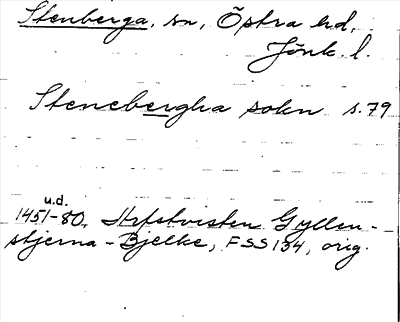 Stenberga, sn, Östra hd,
Jönk. l.
Stenebergha sokn s. 79
u.d.
1451-80, Arfstvisten Gyllen-
stjerna - Bjelke, FSS 134, orig.